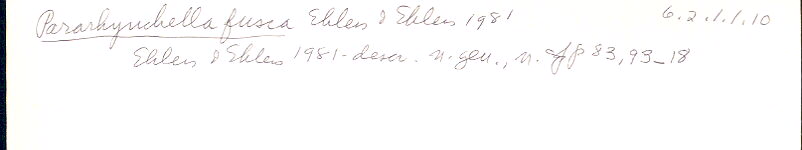 Pararhynchella fusca Ehlers & Ehlers 1981 6.2.1.1.10
Ehlers & Ehlers 1981 - descr. n. gen., n. sp p 83, 93-18